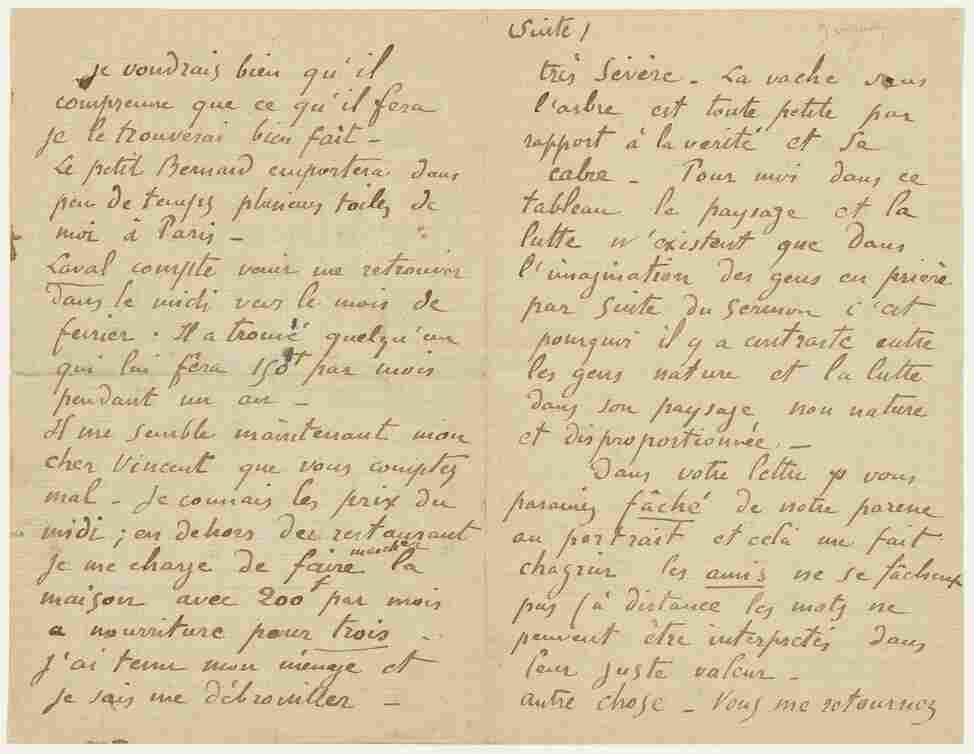 je voudrais bien qu'il
comprenne que ce qu'il fera
je le trouverai bien fait –
Le petit Bernard emportera dans
peu de temps plusieurs toiles de
moi à Paris –
Laval compte venir me retrouver
dans le midi vers le mois de
fevrier. Il a trouvé quelqu'un
qui lui fera 150f par mois
pendant un an –
Il me semble maintenant mon
cher Vincent que vous comptez
mal – Je connais les prix du
midi ; en dehors du restaurant
je me charge de faire marcher la
maison avec 200f par mois
a nourriture pour trois –
j'ai tenu mon menage et
je sais me débrouiller –
Suite /
très sévère – La vache sous
l'arbre est toute petite par
rapport à la verité et se
cabre – Pour moi dans ce
tableau le paysage et la
lutte n'existent que dans
l'imagination des gens en prière
par suite du sermon c'est
pourquoi il y a contraste entre
les gens nature et la lutte
dans son paysage non nature
et disproportionnée –
Dans votre lettre vous
paraissez fâché de notre paresse
au portrait et cela me fait
chagrin les amis ne se fâchent
pas (à distance les mots ne
peuvent être interpretés dans
leur juste valeur –
autre chose – Vous me retournez